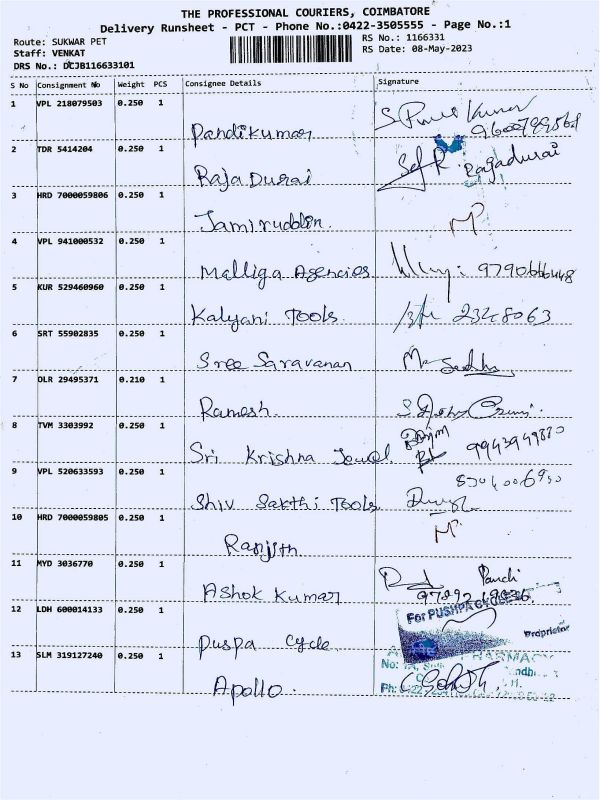 THE PROFESSIONAL COURIERS, COIMBATORE
Delivery Runsheet - PCT - Phone No.:0422-3505555 - Page No.:1
Route: SUKWAR PET
Staff: VENKAT
DRS No.: DCJB116633101
RS No.: 1166331
RS Date: 08-May-2023
S No Consignment No Weight PCS Consignee Details Signature
1 VPL 218079503 0.250 1 Pandikumar Kumar
2 TDR 5414204 0.250 1 Raja Durai Ragadurai
3 HRD 7000059806 0.250 1 Jamiruddin.
4 VPL 941000532 0.250 1 Malliga Agencies
5 KUR 529460960 0.250 1 Kalyani Tools
6 SRT 55902835 0.250 1 Sree Saravanan
7 OLR 29495371 0.210 1 Ramesh
8 TVM 3303992 0.250 1 Sri Krishna Jewel
9 VPL 520633593 0.250 1 Shiv Sakthi Tools
10 HRD 7000059805 0.250 1 Ranjith
11 MYD 3036770 0.250 1 Ashok Kumar Pandi
12 LDH 600014133 0.250 1 Puspa Cycle For PUSHPA
Proprietor
13 SLM 319127240 0.250 1 Apollo.
PHARMACY
No:
Ph: